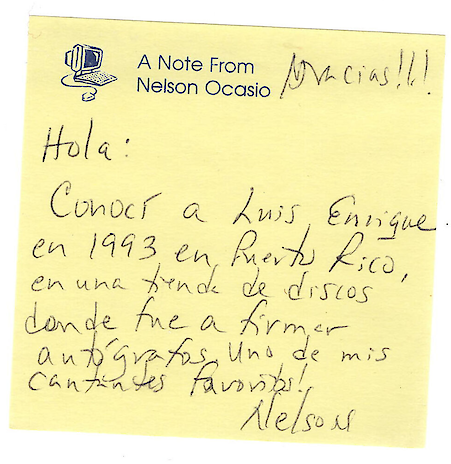 A Note From
Nelson Ocasio
Gracias!!!
Hola:
Conocí a Luis Enrique
en 1993 en Puerto Rico,
en una tienda de discos
donde fue a firmar
autógrafos. Uno de mis
cantantes favoritos!
Nelson